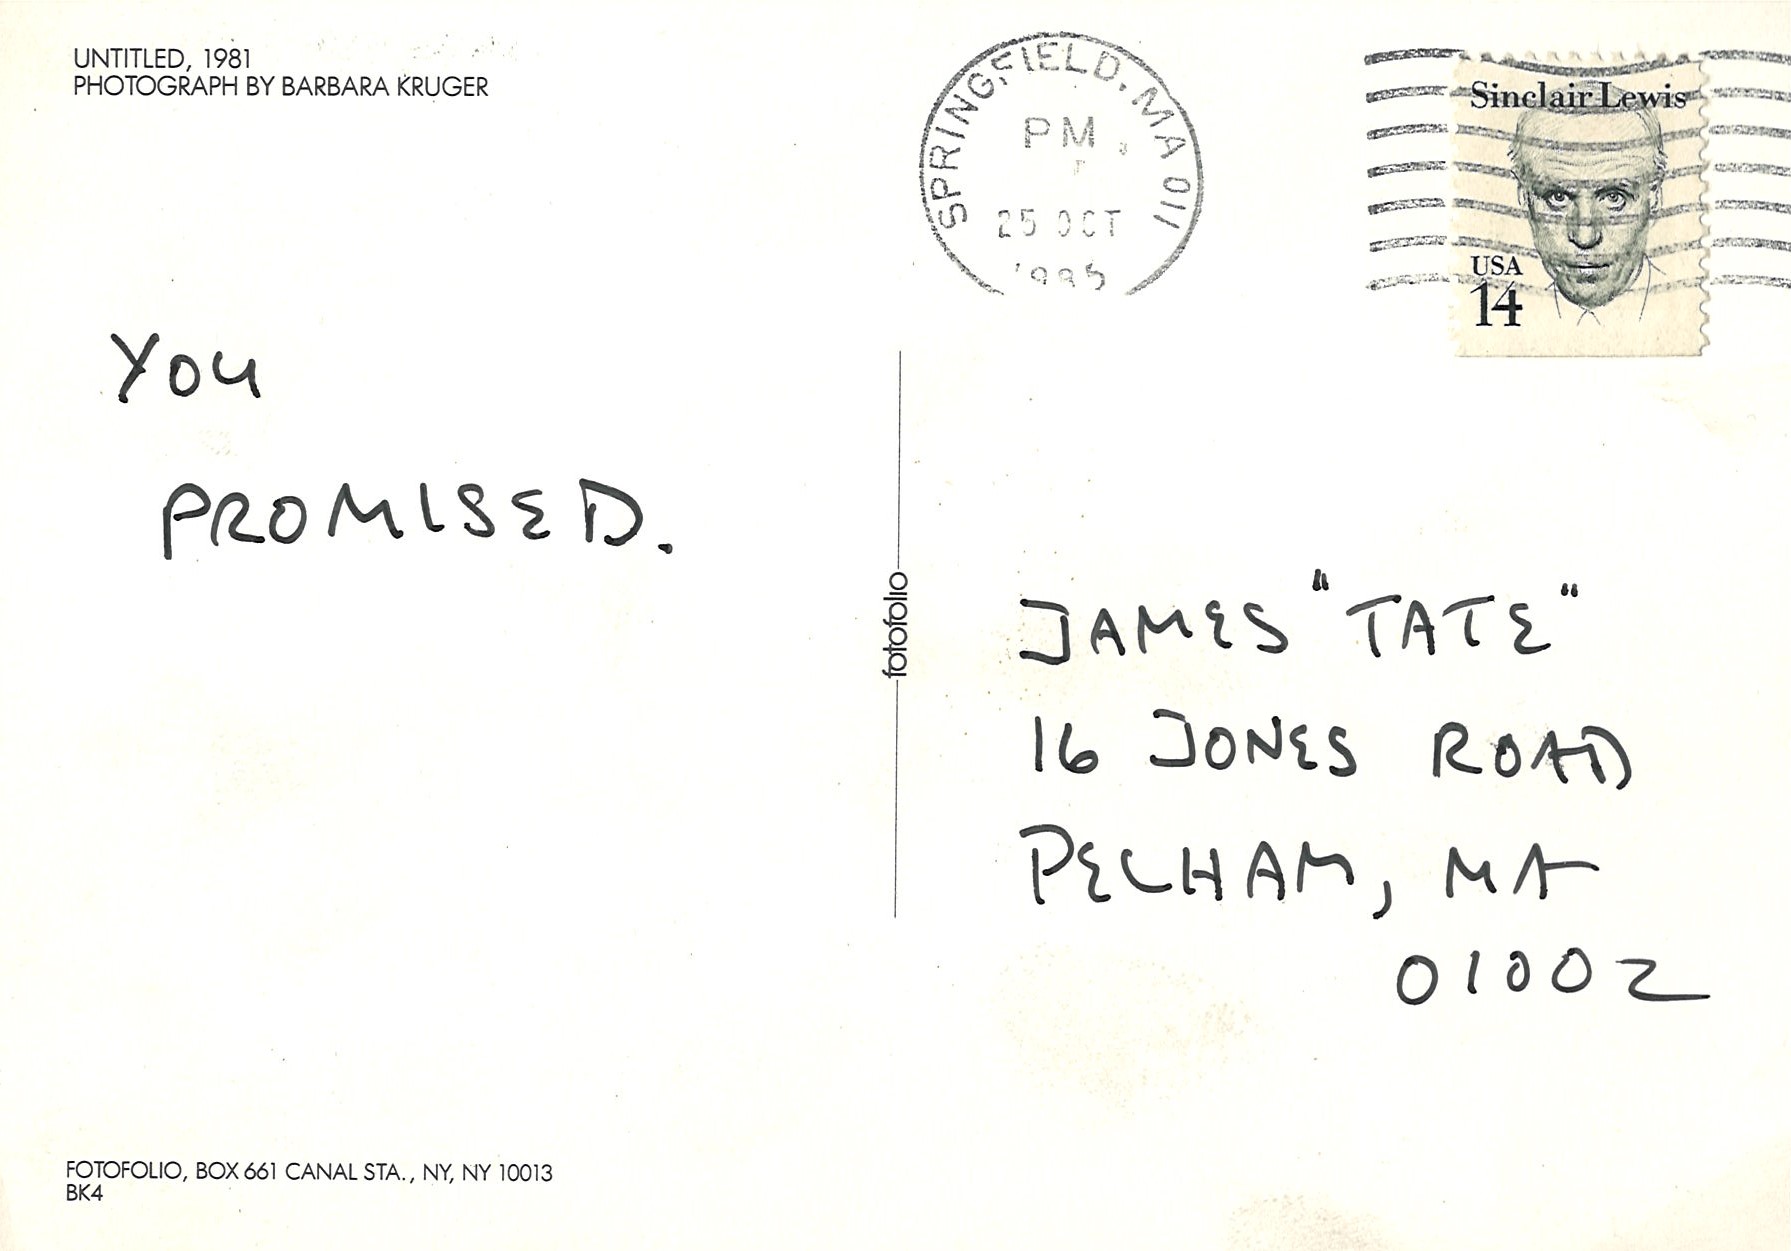 UNTITLED, 1981
PHOTOGRAPH BY BARBARA KRUGER
SPRINGFIELD, MA 011
PM
25 OCT
1985
Sinclair Lewis
USA
14
YOU
PROMISED.
fotofolio
JAMES "TATE"
16 JONES ROAD
PELHAM, MA
01002
FOTOFOLIO, BOX 661 CANAL STA., NY, NY 10013
BK4